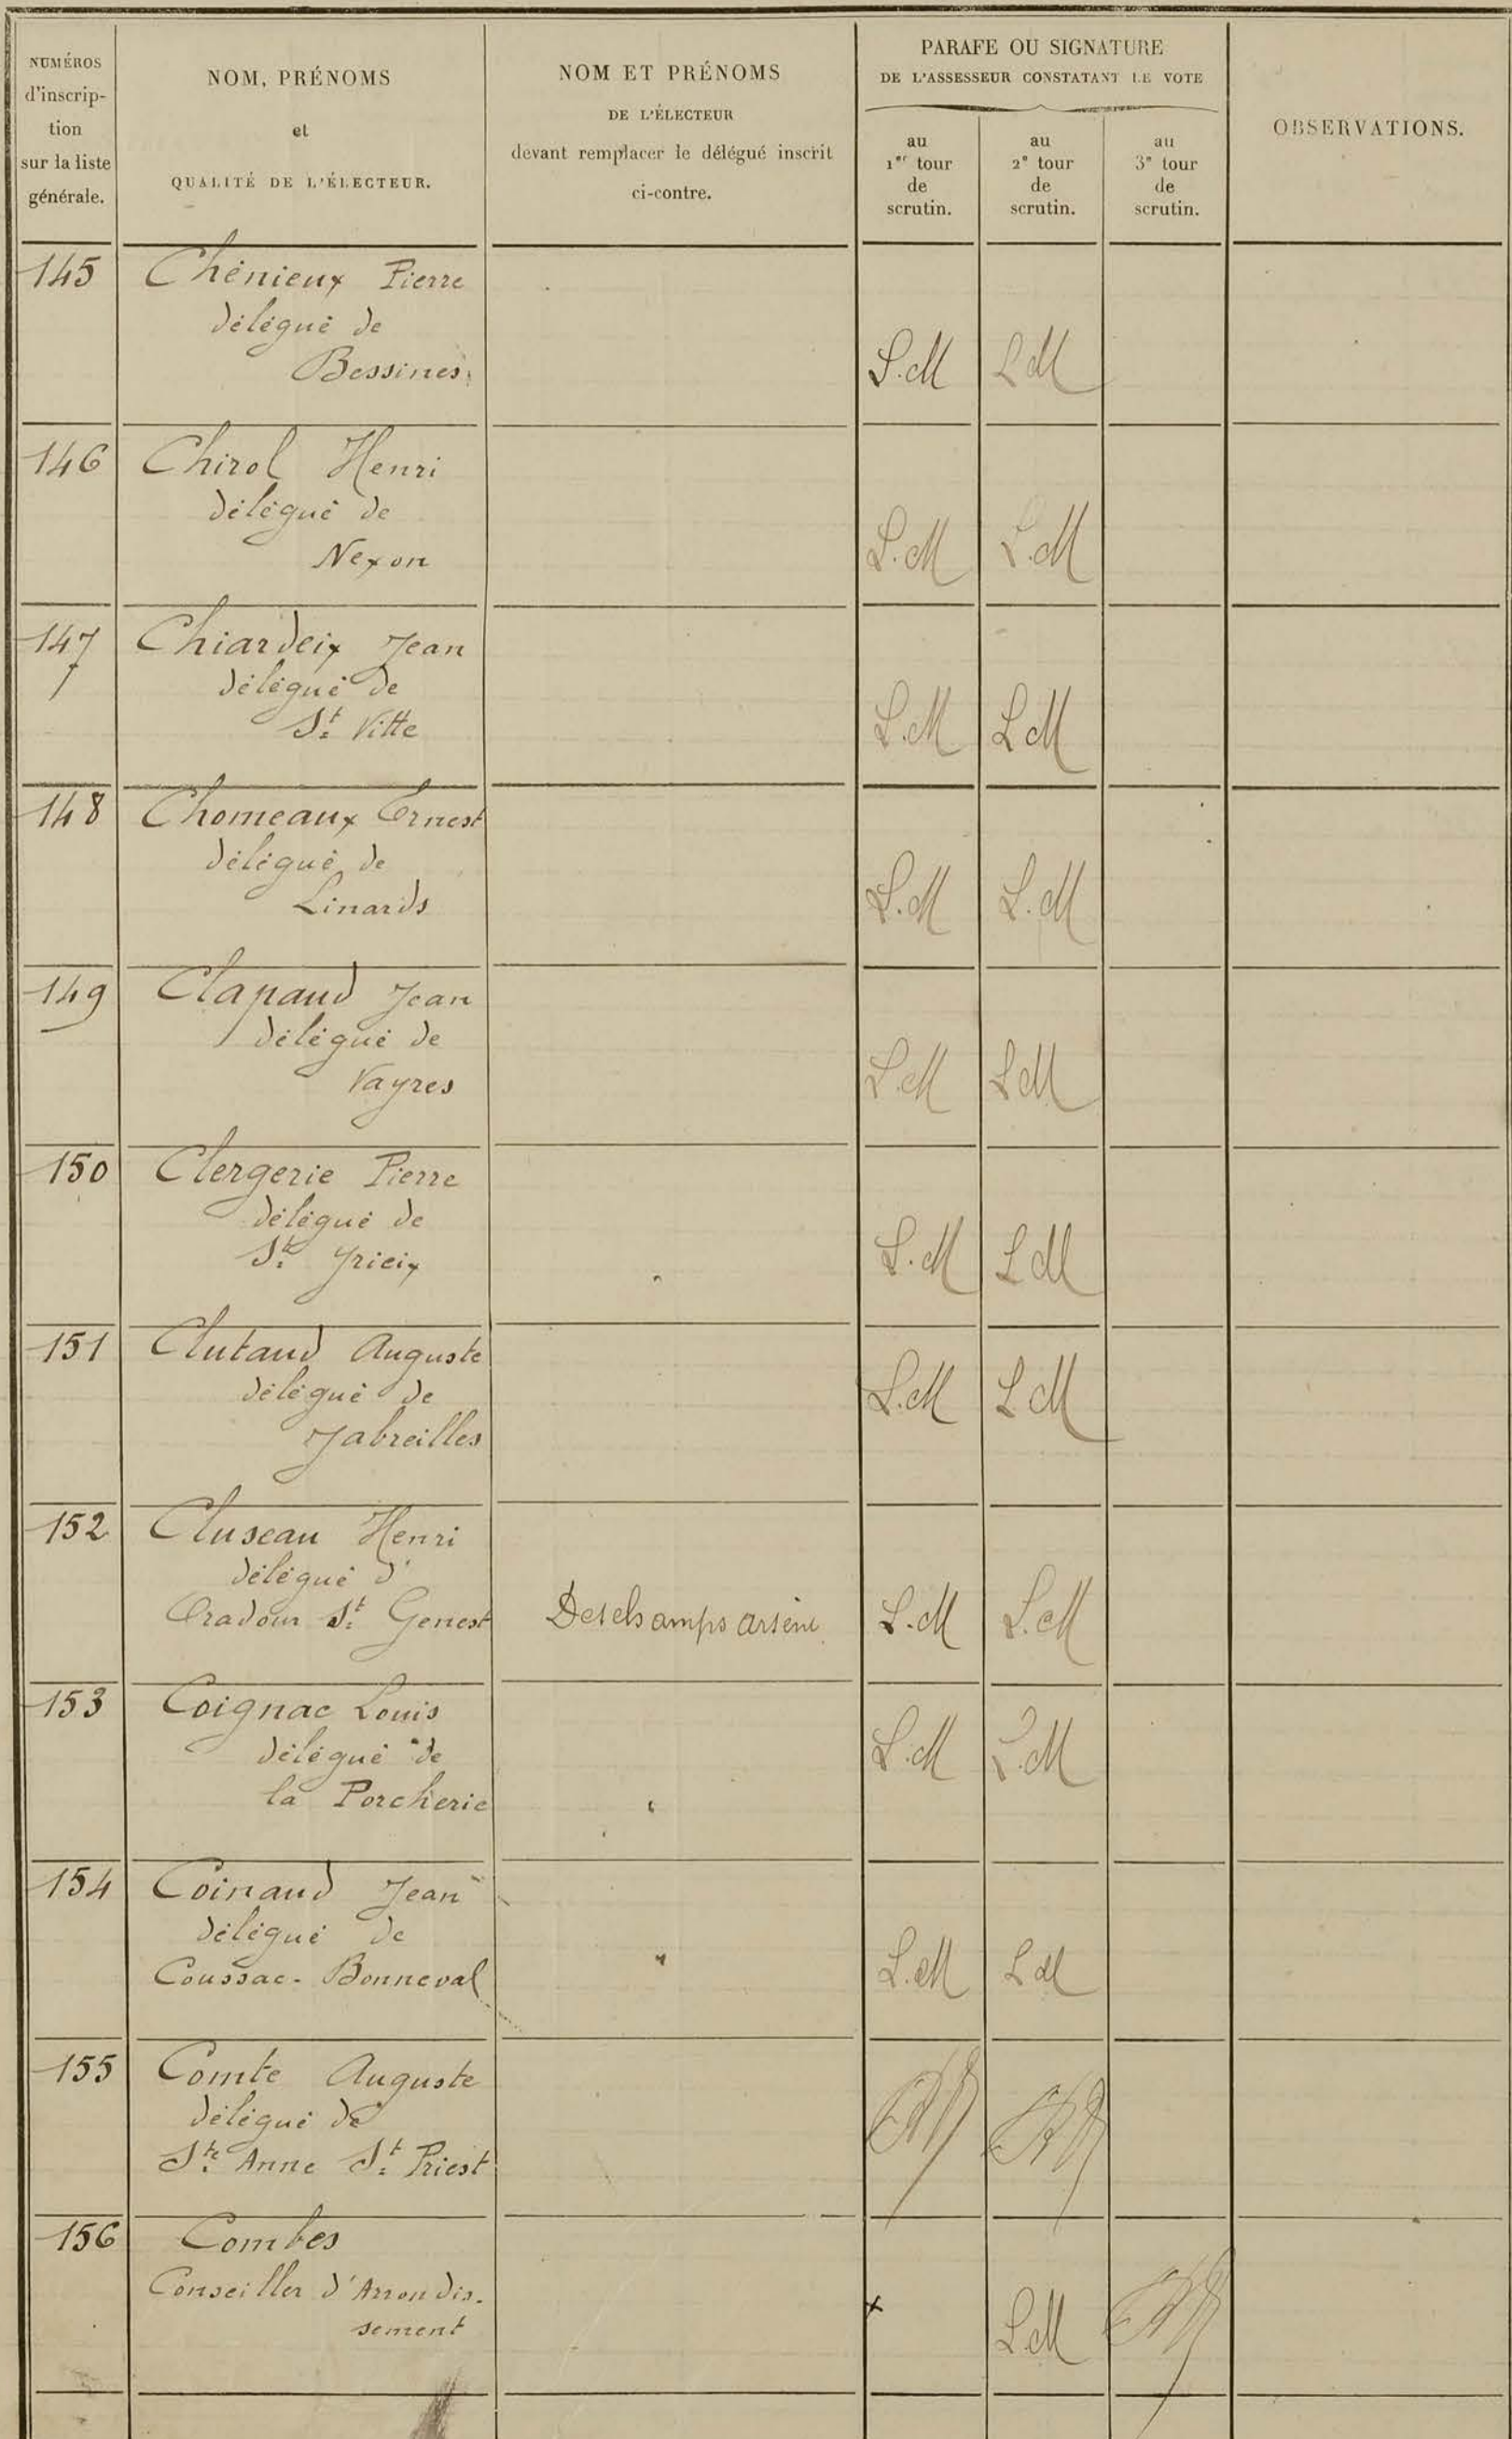 NUMÉROS
d'inscrip-
tion
sur la liste
générale.
NOM, PRÉNOMS
et
QUALITÉ DE L'ÉLECTEUR.
NOM ET PRÉNOMS
DE L'ÉLECTEUR
devant remplacer le délégué inscrit
ci-contre.
PARAFE OU SIGNATURE
DE L'ASSESSEUR CONSTATANT LE VOTE
au
1er tour
de
scrutin.
au
2e tour
de
scrutin.
au
3e tour
de
scrutin.
OBSERVATIONS.
145 Chénieux Pierre
délégué de
Bessines L.M LM
146 Chirol Henri
délégué de
Nexon L.M L.M
147 Chiardeix Jean
délégué de
St Vitte L.M LM
148 Chomeaux Ernest
délégué de
Linards L.M L.M
149 Clapaud Jean
délégué de
Vayres L.M LM
150 Clergerie Pierre
délégué de
St Yrieix L.M LM
151 Clutaud Auguste
délégué de L.M LM
Jabreilles
152 Cluseau Henri
délégué d'
Oradour St Genest Deschamps arsène L.M L.M
153 Coignac Louis
délégué de L.M L.M
la Porcherie
154 Coinaud Jean
délégué de
Coussac-Bonneval L.M LM
155 Comte Auguste
délégué de
Ste Anne St Priest
156 Combes
Conseiller d'Arrondis-
sement x LM